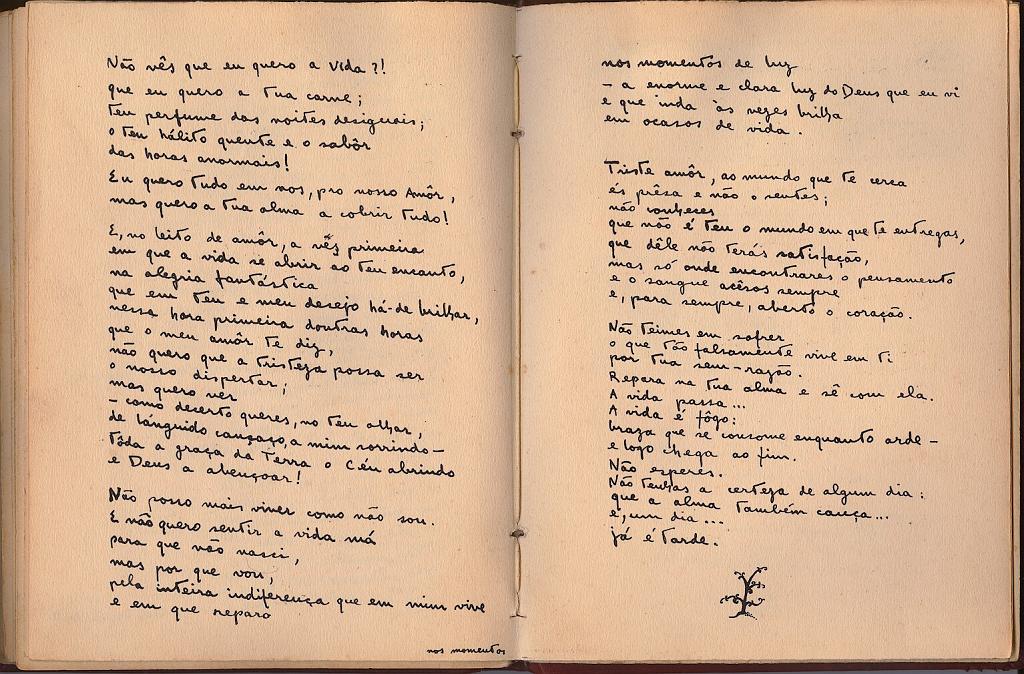 Não vês que eu quero a vida?!
que eu quero a tua carne;
teu perfume das noites desiguais;
o teu hálito quente e o sabôr
das horas anormais!
Eu quero tudo em nos, pro nosso Amôr,
mas quero a tua alma a cobrir tudo!
E, no leito de amôr, a vês primeira
em que a vida se abrir ao teu encanto,
na alegria fantástica
que em teu e meu desejo há-de brilhar,
nessa hora primeira doutras horas
que o meu amôr te diz,
não quero que a tristeza possa ser
o nosso dispertar;
mas quero ver
– como decerto queres, no teu olhar,
de lánguido cançaço, a mim sorrindo –
tôda a graça da Terra o Céu abrindo
e Deus a abençoar!
Não posso mais viver como não sou.
E não quero sentir a vida má
para que não nasci,
mas por que vou,
pela inteira indiferença que em mim vive
e em que reparo
nos momentos
nos momentos de luz
– a enorme e clara luz do Deus que eu vi
e que inda às vezes brilha
em ocasos de vida.
Triste amôr, ao mundo que te cerca
és prêsa e não o sentes;
não conheces
que não é teu o mundo em que te entregas,
que dêle não terás satisfação,
mas só onde encontrares o pensamento
e o sangue acêsos sempre
e, para sempre, aberto o coração.
Não teimes em sofrer
o que tão falsamente vive em ti
por tua sem-razão.
Repara na tua alma e sê com ela.
A vida passa...
A vida é fôgo:
braza que se consome enquanto arde –
e logo chega ao fim.
Não esperes.
Não tenhas a certeza de algum dia:
que a alma também cança...
e, um dia...
já é tarde.